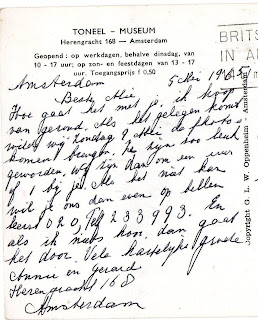 TONEEL – MUSEUM
Herengracht 168 — Amsterdam
Geopend: op werkdagen, behalve dinsdag, van
10 - 17 uur; op zon- en feestdagen van 13 - 17
uur. Toegangsprijs f 0,50
BRITS
IN A
Amsterdam 5 Mei 196
Beste Alie
Hoe gaat het met je, ik hoop
van gezond. Als het gelegen komt
wilden wij Zondag 9 Mei de photo
komend brengen. Ze zijn zoo leuk
geworden, wij zijn dan om een uur
of 1 bij je. Als het niet kan
wil je ons dan even op bellen
eerst 020, Tel 233993. En
als ik niets hoor dan gaat
het door. Vele hartelijke groete
Annie en Gerard
Herengracht 168
Amsterdam
Copyright G. L. W. Oppenheim - Amsterdam